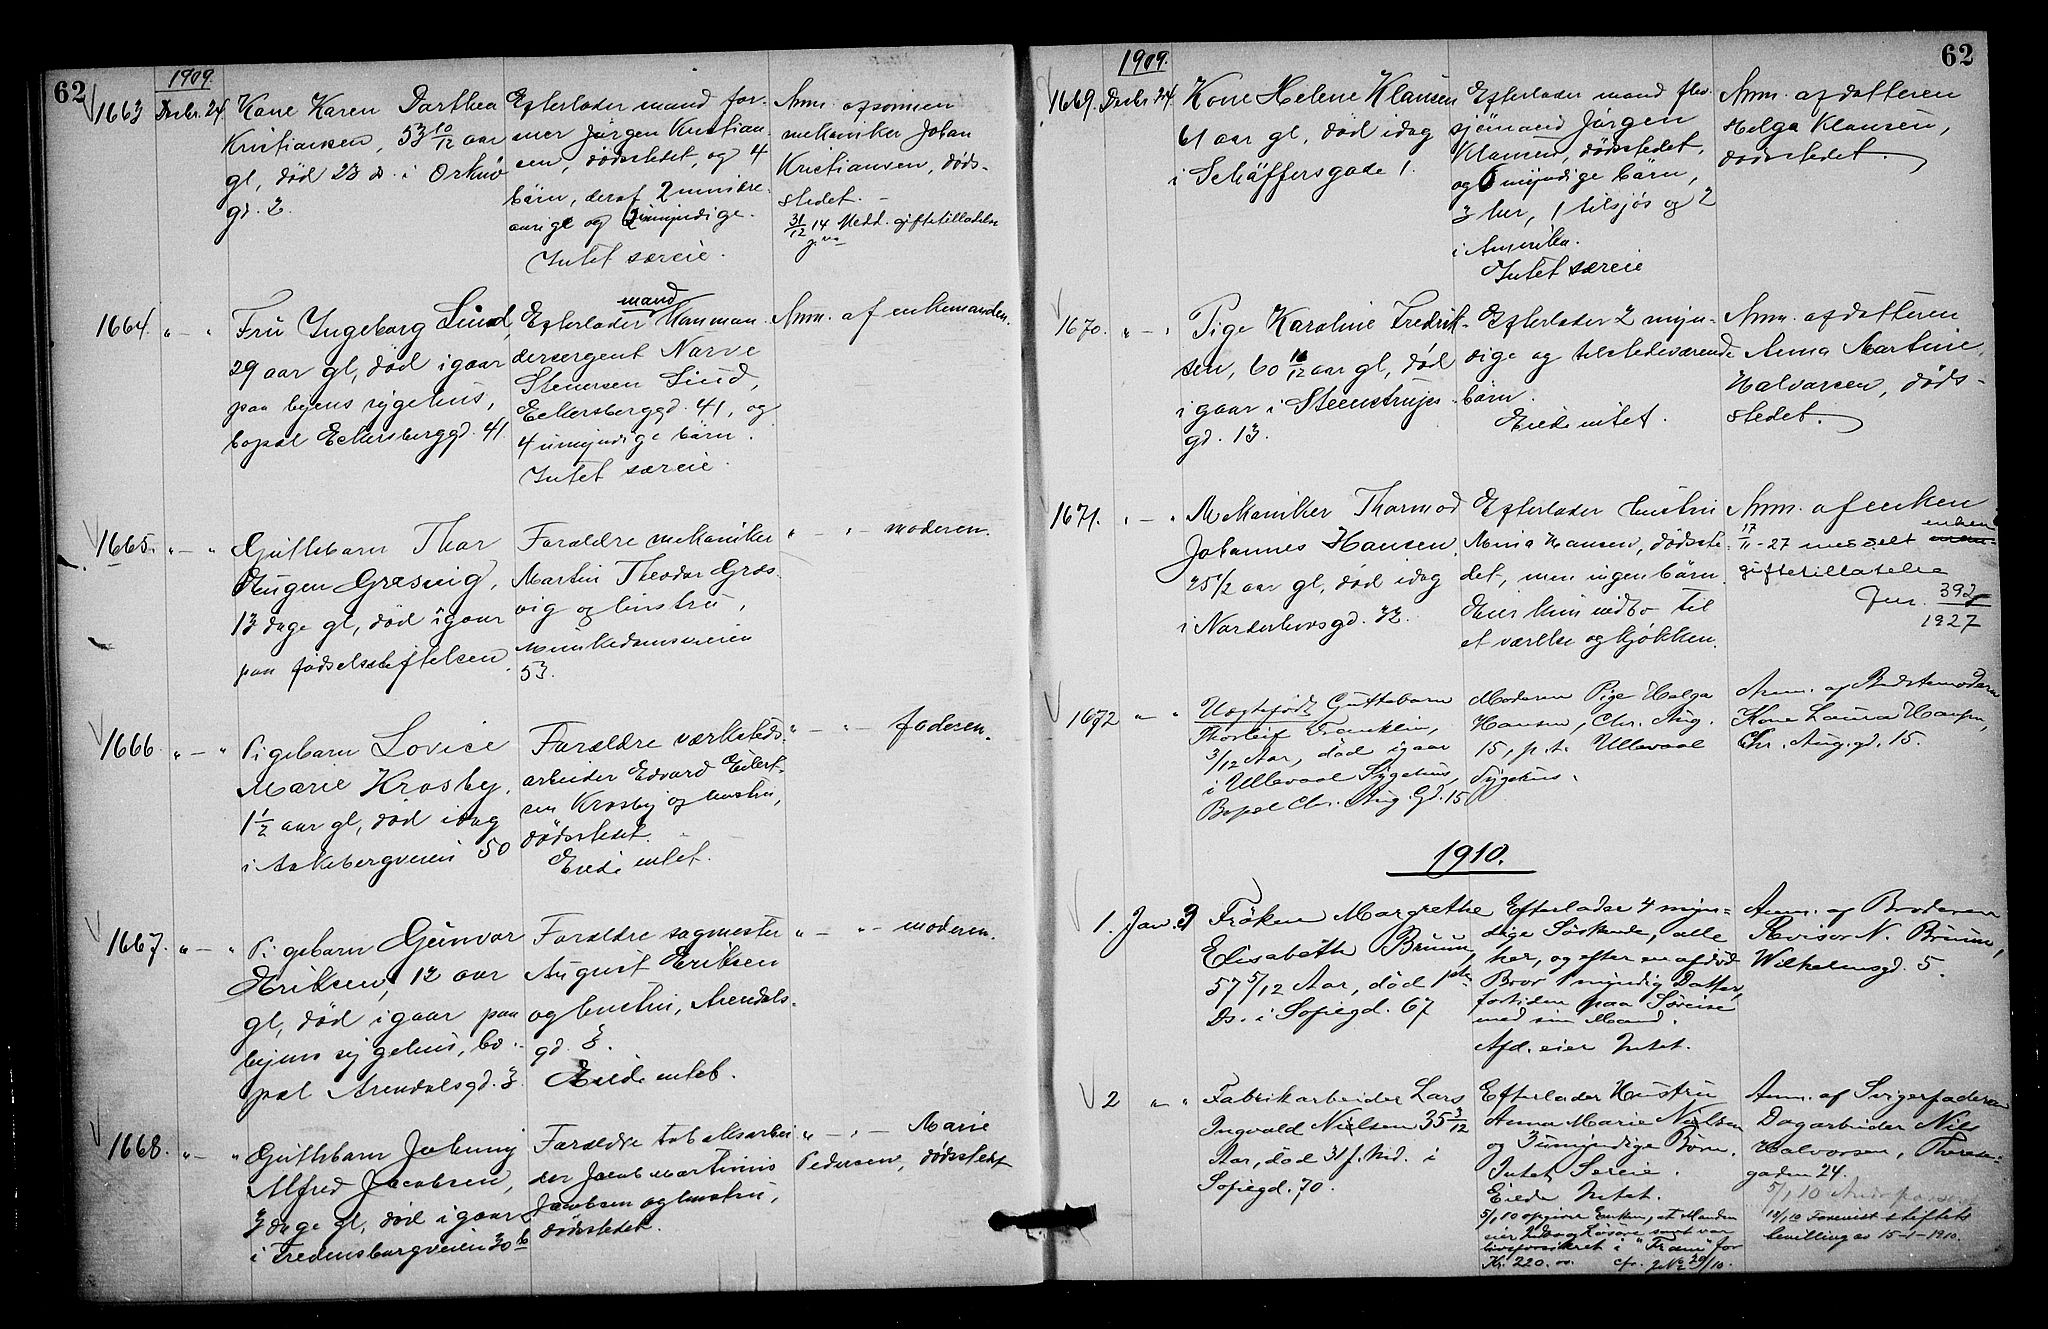 62
1909.
1663 Decbr. 24.
Kone Karen Dorthea
Kristiansen, 53 10/12 aar
gl, død 23 ds. i
gd. 2.
Efterlader mand for-
mer Jørgen Kristian-
sen, dødsstedet, og 4
børn, deraf 2 mindre-
aarige og 2 umyndige.
Intet særeie.
Anm. af sønnen
mekaniker Johan
Kristiansen, døds-
stedet. -
31/12 14 Medd. giftetilladelse
1664. " - "
Fru Ingeborg Lund,
29 aar gl, død igaar
paa byens sygehus,
bopæl Eckersberggd. 41.
Efterlader mand Komman-
dersergent Narve
Stenersen Lund,
Eckersberggd. 41, og
4 umyndige børn.
Intet særeie.
Anm. af enkemanden.
1665. " - "
Guttebarn Thor
Eugen Græsvig,
13 dage gl, død igaar
paa fødselsstiftelsen.
Forældre mekaniker
Martin Theodor Græs-
vig og hustru,
Munkedamsveien
53.
" - " - moderen.
1666 " - "
Pigebarn Lovise
Marie Krosby,
1 1/2 aar gl, død idag
i Aakebergveien 50
Forældre værksteds-
arbeider Edvard Eilert-
sen Krosby og hustru,
dødsstedet.
Eiede intet.
" - " - faderen.
1667. " - "
Pigebarn Gunvor
Eriksen, 12 aar
gl, død igaar paa
byens sygehus, bo-
pæl Arendalsgd. 3.
Forældre sagmester
August Eriksen
og hustru, Arendals-
gd. 3.
Eiede intet.
" - " - moderen.
1668. " - "
Guttebarn Johnny
Alfred Jacobsen,
3 dage gl, død igaar
i Fredensborgveien 30 b
Forældre tobaksarbei-
der Jacob Martinius
Jacobsen og hustru,
dødsstedet.
" - " - Marie
Pedersen, dødsstedet
62
1909.
1669. Decbr 24.
Kone Helene Klausen
61 aar gl, død idag
i Schäffersgade 1.
Efterlader mand flev.
sjømand Jørgen
Klausen, dødsstedet,
og 6 myndige børn,
3 her, 1 tilsjøs og 2
i Amerika.
Intet særeie
Anm. af datteren
Helga Klausen,
dødsstedet.
1670. " - "
Pige Karoline Fredrik-
sen, 60 10/12 aar gl, død
igaar i Steenstrups-
gd. 13.
Efterlader 2 myn-
dige og tilstedeværende
børn.
Eiede intet.
Anm. af datteren
Anna Martine
Halvorsen, døds-
stedet.
1671. " - "
Mekaniker Thormod
Johannes Hansen,
25 1/2 aar gl, død idag
i Nordahlsgd. 32.
Efterlader hustru
Mina Hansen, dødsste-
det, men ingen børn.
Eier kun indbo til
et værelse og kjøkken.
Anm. af enken
17/11-27 meddelt enken
giftetillatelse
Jur. 392/1927
1672 " - "
Uægtefødt Guttebarn
Thorleif Franklin,
3/12 Aar, død igaar
i Ullevaal Sygehus,
Bopæl Chr. Aug. Gd. 15
Moderen Pige Helga
Hansen, Chr. Aug.
15, p.t. Ullevaal
Sygehus.
Anm. af Bedstemoderen
Kone Laura Hansen,
Chr. Aug. gd. 15.
1910.
1. Jan. 3
Frøken Margrethe
Elisabeth Bruun,
57 5/12 Aar, død 1ste
Ds. i Sofiegd. 67
Efterlader 4 myn-
dige Søskende, alle
her, og efter en afdød
Bror 1 myndig Datter,
fortiden paa Søreise
med sin Mand.
Afd. eier Intet.
Anm. af Broderen
Revisor N. Bruun,
Wilhelmsgd. 5.
2 " "
Fabrikarbeider Lars
Ingvald Nielsen 35 3/12
Aar, død 31 f. Md. i
Sofiegd. 70.
Efterlader Hustru
Anna Marie Nielsen
og 3 umyndige Børn.
Intet Særeie.
Eiede Intet.
5/1 10 opgiver Enken, at Manden
eier Indbo og Løsøre samt var
livsforsikret i "Fram" for
Kr. 220.00. cfr. J.No 29/10.
Anm. af Svigerfaderen
Dagarbeider Nils
Halvorsen, Therese-
gaden 24.
5/1 10
12/1 10 Forevist stiftets
bevilling av 15-1-1910.